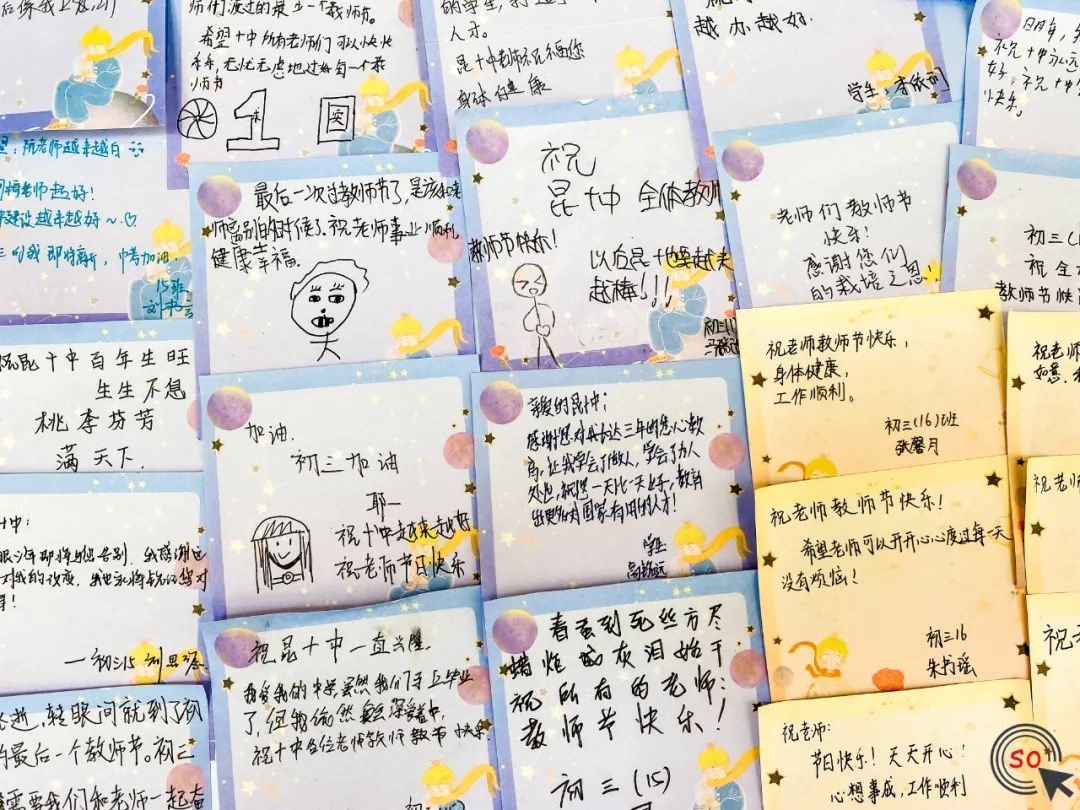 师们渡过的最后一个教师节。
希望十中所有老师们可以快快
乐乐,无忧无虑地过好每一个教
师节
1
人才。
昆十中老师祝福您
身体健康
越办越好.
学生:
快乐.
阮老师越来越白
老师越好!
建设越来越好~♡
我即将离开,中考加油
15班
最后一次过教师节了,是该和老
师离别的时候了.祝老师事业顺利
健康幸福.
祝
昆十中 全体教师
教师节快乐!
以后昆十中越来越
越棒!!!
初三
老师们教师节
快乐!
感谢您们
的栽培之恩!
初三(
祝全
教师节快
昆十中百年生旺
生生不息
桃李芬芳
满天下.
加油.
初三加油
耶—
祝十中越来越好
祝老师节日快乐
亲爱的昆十中:
感谢您对我长达三年的悉心教
育,让我学会了做人,学会了为人
处世,祝您一天比一天上乘,教育
出更多对国家有用的人才!
学生
祝老师教师节快乐,
身体健康,
工作顺利。
初三(16)班
张馨月
祝老师
如意,
十中:
眼三年即将与您告别,我感谢
对我的
—初三15 刘思
祝老师教师节快乐!
希望老师可以开开心心度过每一天
没有烦恼!
初三16
祝老师
祝昆十中一直兴隆.
祝十中各位老师教师节快乐
春蚕到死丝方尽
蜡炬成灰泪始干
祝所有的老师:
教师节快乐!
初三(15)
逝,转眼间就到了初
的最后一个教师节。初三
需要我们和老师一起奋
祝老师:
节日快乐!天天开心!
心想事成,工作顺利
祝
SO